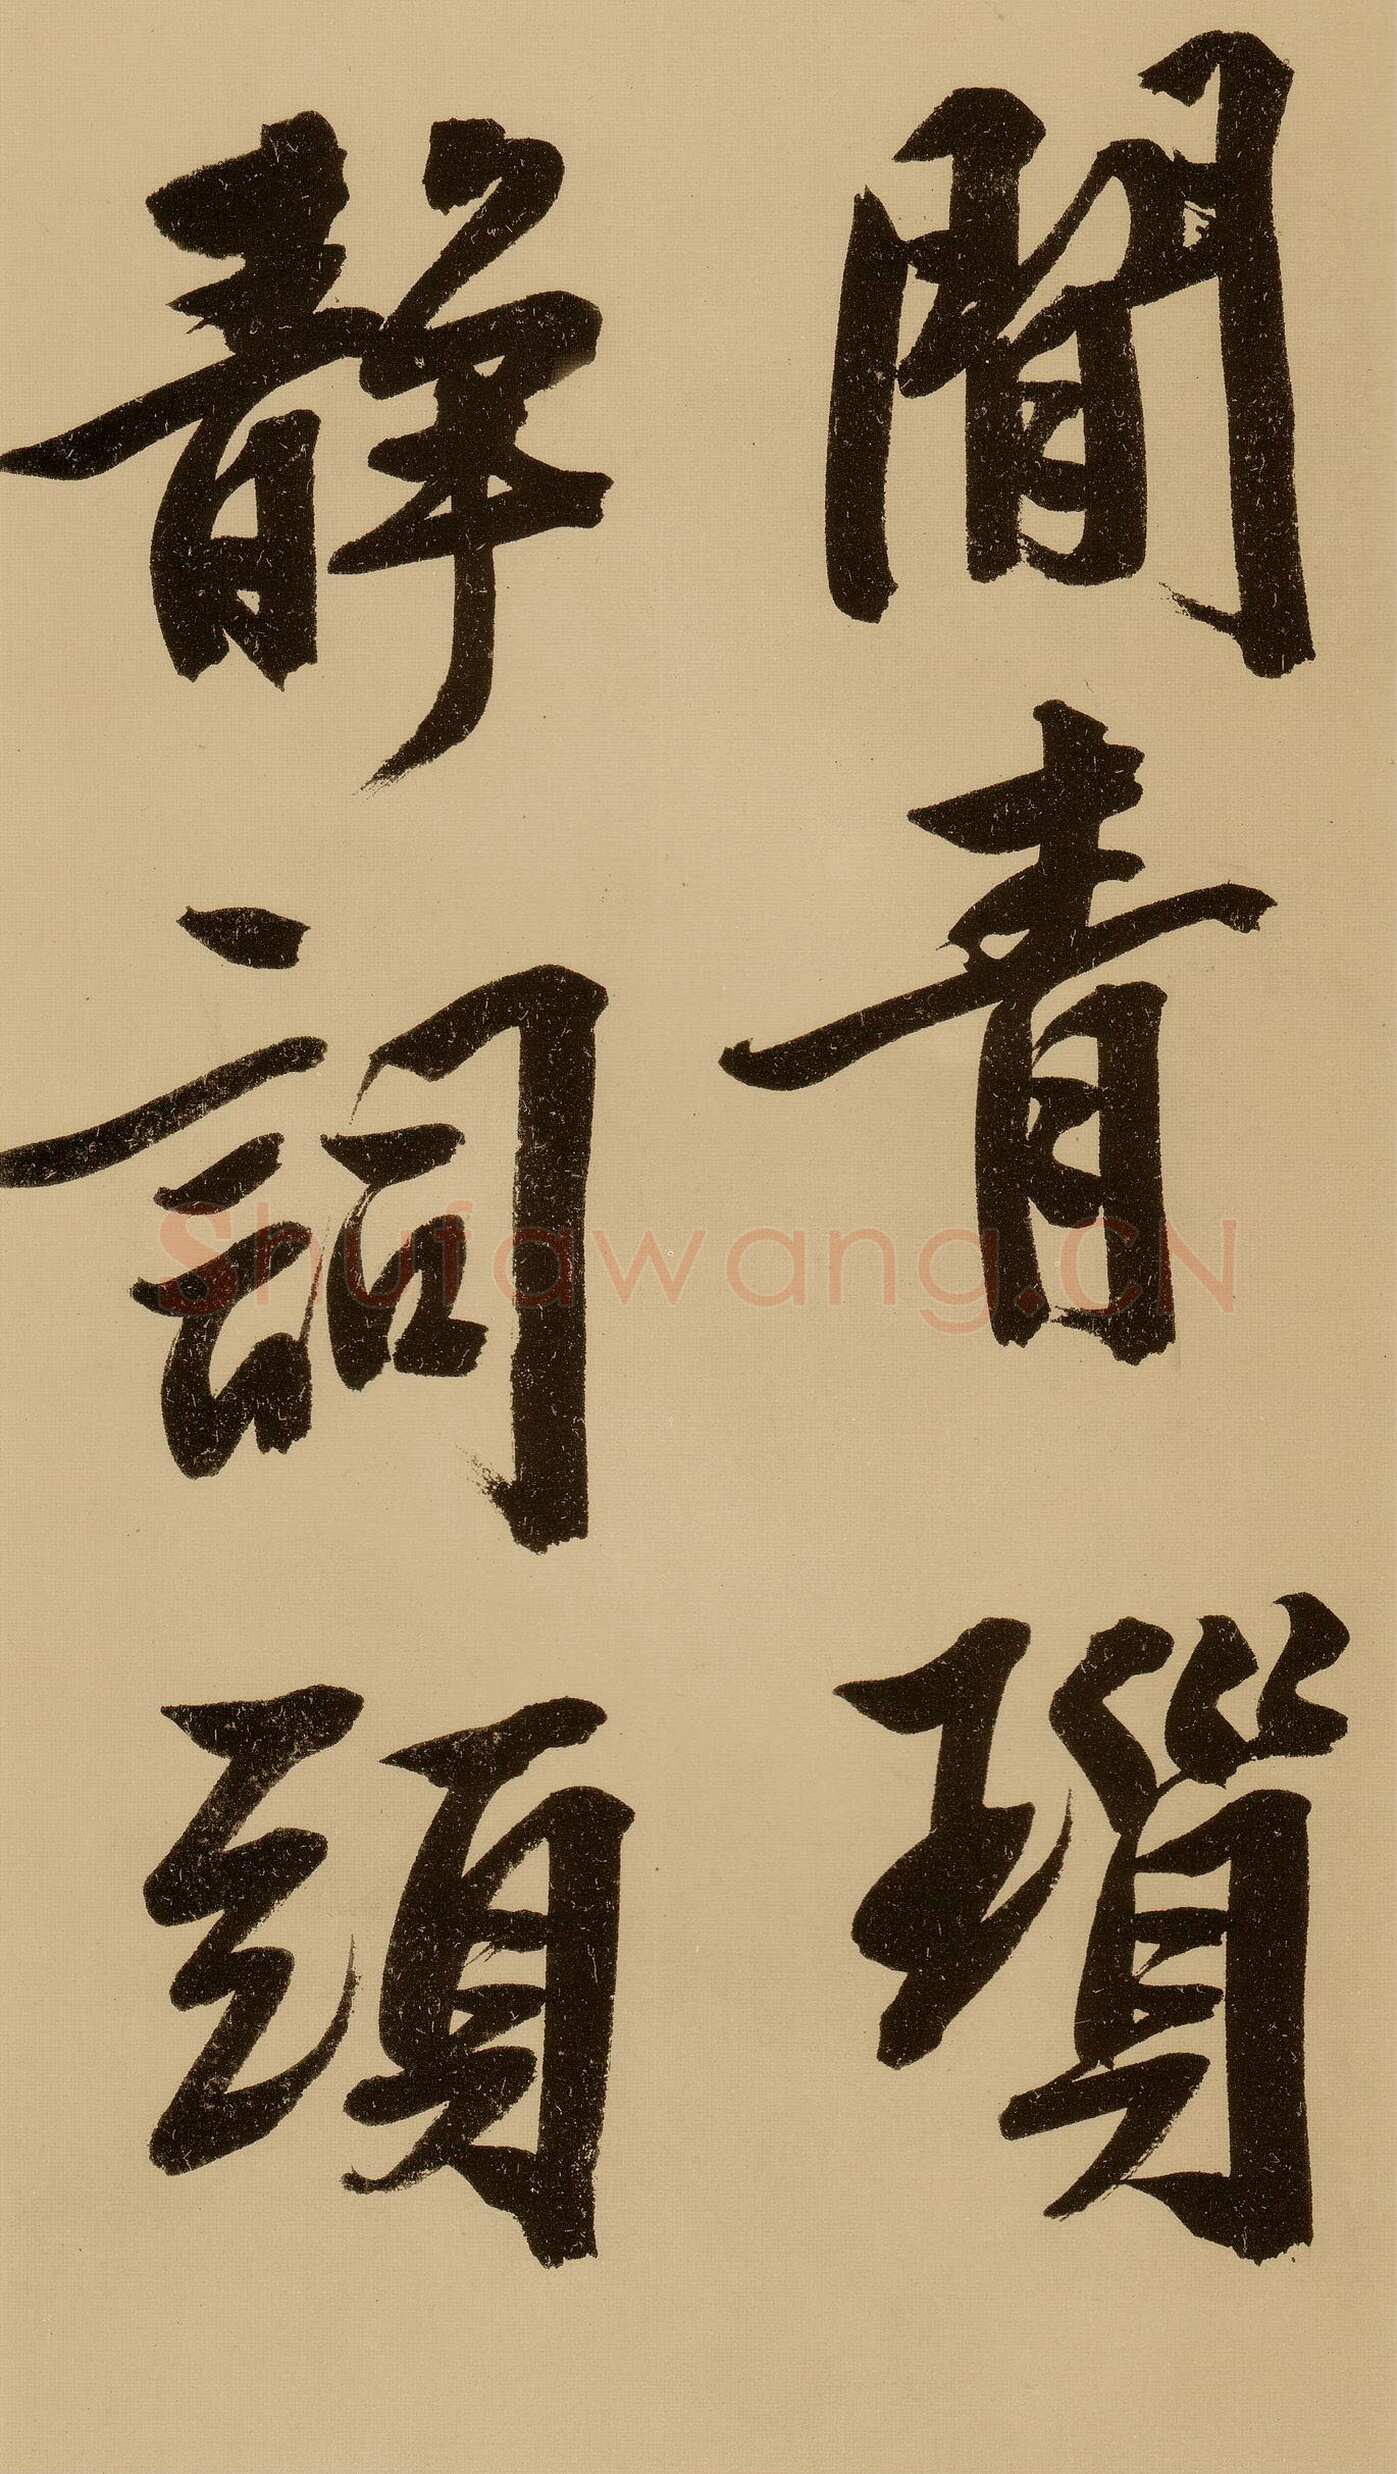 閒青瑣
靜詞頭
Shufawang.CN